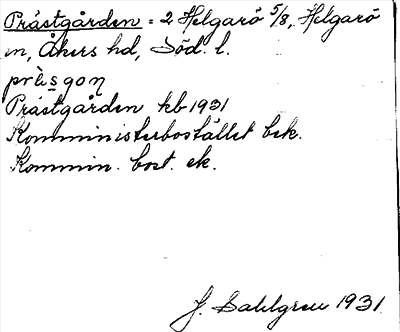 Prästgården = 2 Helgarö 5/8, Helgarö
sn, Åkers hd, Söd. l.
prɛ̀sgoɳ
Prästgården kb 1931
Komministerbostället bek.
Kommin. bost. ek.
J. Sahlgren 1931